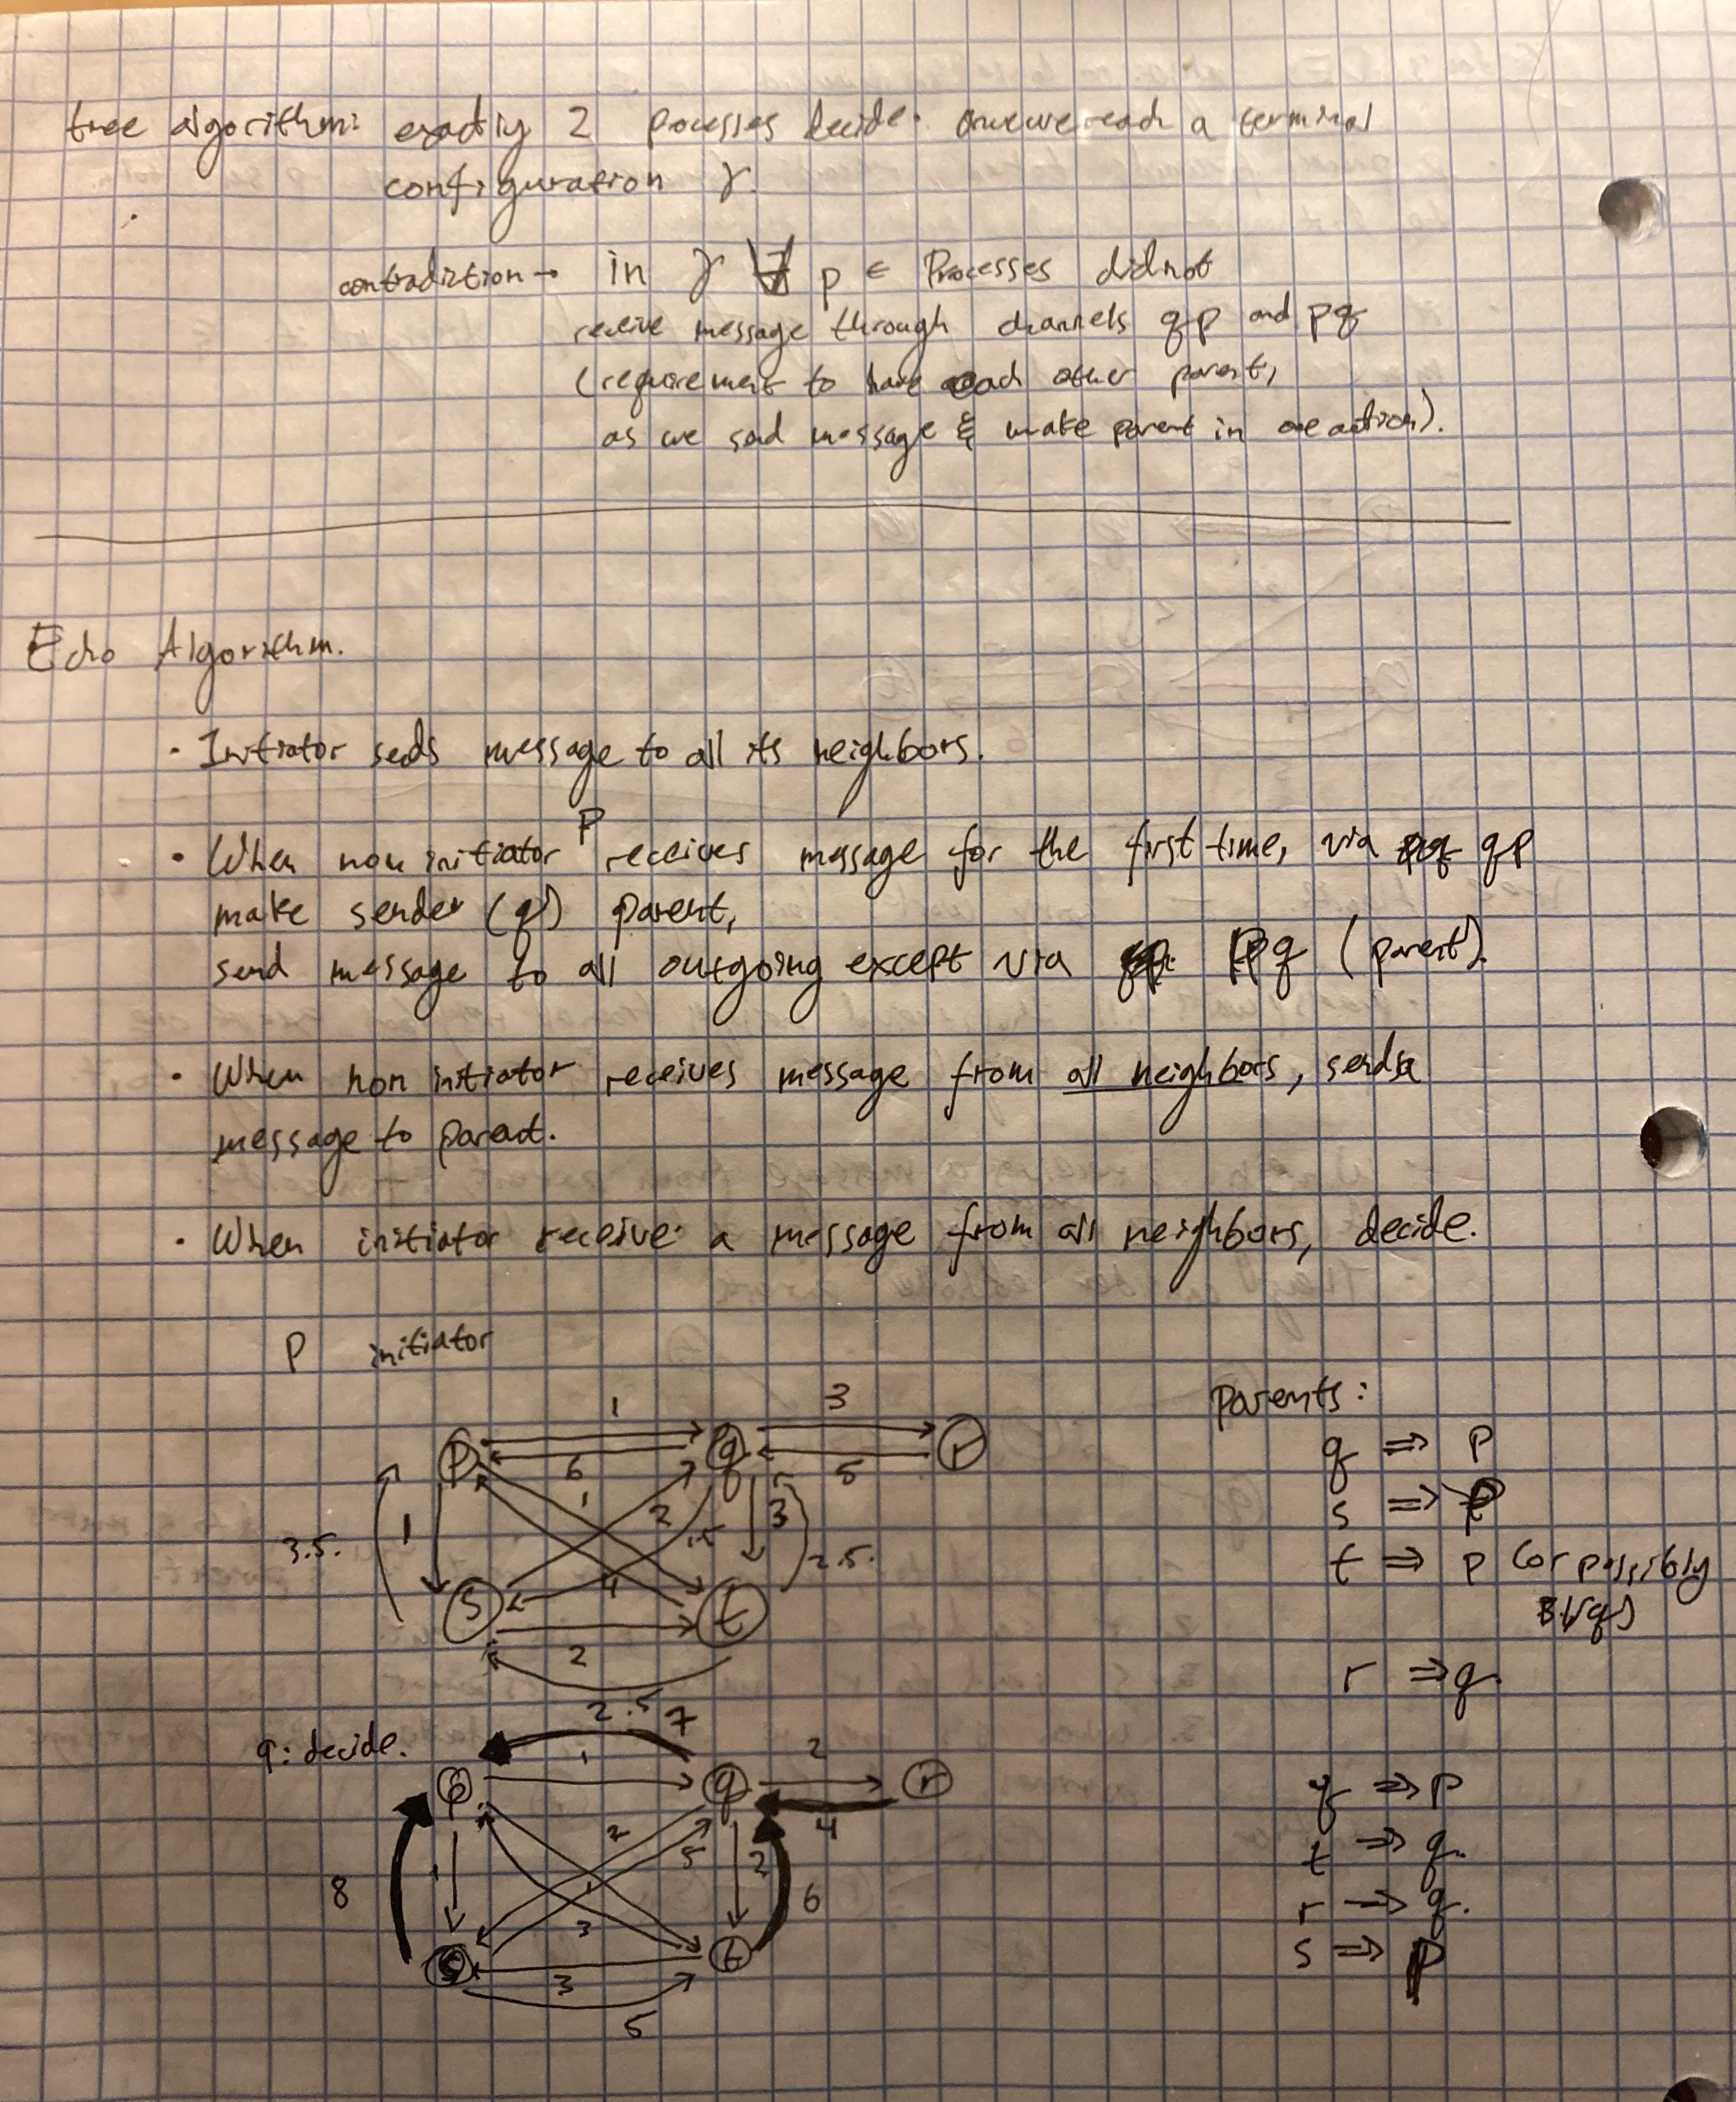 tree algorithm: exactly 2 pocesses decide. once we reach a terminal
configuration γ.
contradiction → in γ ∀ p ∈ Processes did not
receive message through channels qp and pq
(requirement to have each other parent,
as we send message & make parent in one action).
Echo Algorithm.
· Initiator sends message to all its neighbors.
· When non initiator p receives message for the first time, via qp
make sender (q) parent,
send message to all outgoing except via pq (parent).
· When non initiator receives message from all neighbors, sends a
message to parent.
· When initiator receive a message from all neighbors, decide.
P initiator
1 3
p q r
6 5
1 2 3
3.5. 1 1.5 2.5.
4
s t
2
2.5
Parents:
q ⇒ p
s ⇒ p
t ⇒ p (or possibly
s/q)
r ⇒ q.
q: decide.
7
1 2
p q r
4
2 5 2
8 1 1 6
3
s t
3
5
q ⇒ p
t ⇒ q.
r → q.
s ⇒ p